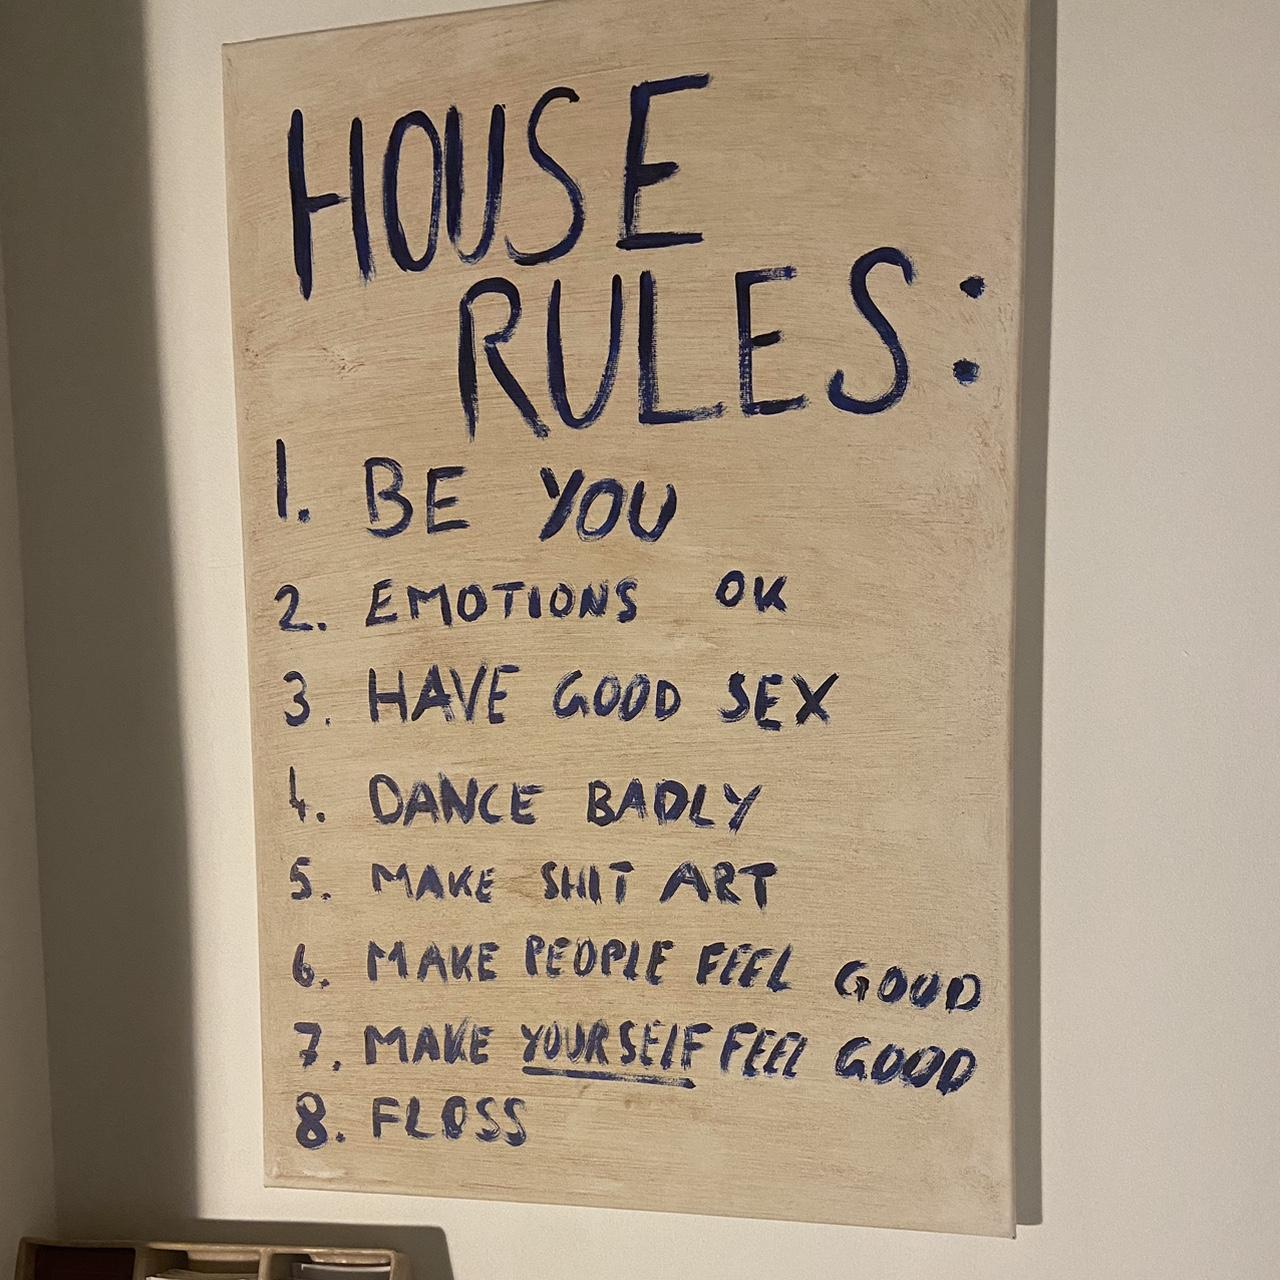 HOUSE
RULES:
1. BE YOU
2. EMOTIONS OK
3. HAVE GOOD SEX
4. DANCE BADLY
5. MAKE SHIT ART
6. MAKE PEOPLE FEEL GOOD
7. MAKE YOURSELF FEEL GOOD
8. FLOSS